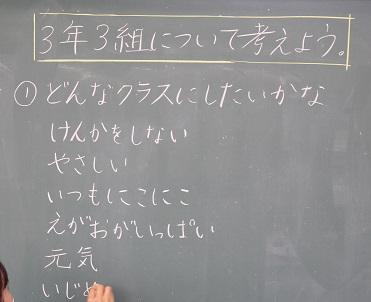 3年3組について考えよう。
①どんなクラスにしたいかな
けんかをしない
やさしい
いつもにこにこ
えがおがいっぱい
元気
いじめ